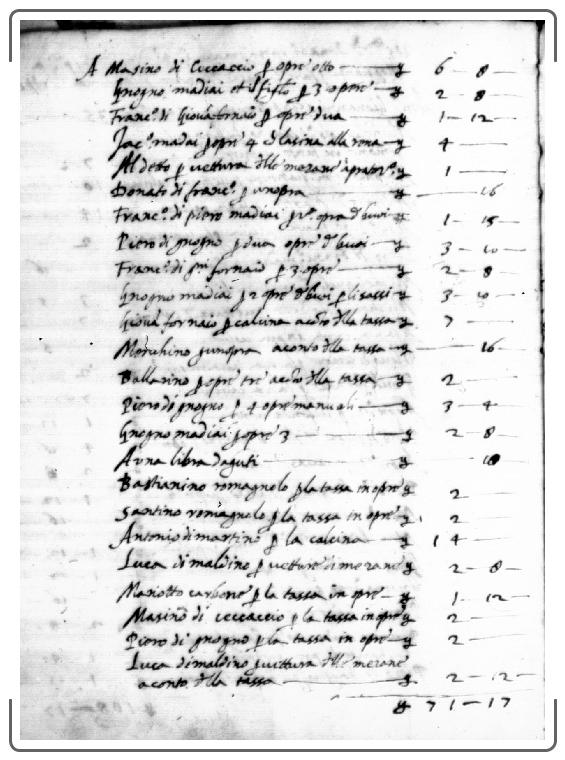 A Masino di Ceccaccio p opre otto — 6 — 8 —
Gnogno madiai et p 3 opre — 2 — 8 —
Franc.º di Giovā fornaio p opre dua — 1 — 12 —
Jac.º madiai p opre 4 d lasina alla rena — 4 —
Al detto p vettura dlle morane — 1 —
Donato di franc.º p unopra — 16
Franc.º di piero madiai p opra d buoi — 1 — 15 —
Piero di gnogno p dua opre d buoi — 3 — 10 —
Franc.º di fornaio p 3 opre — 2 — 8
Gnogno madiai p 2 opre d buoi p li sassi — 3 — 10 —
Giovā fornaio p calcina acōto dlla tassa — 7 —
Morchino p unopra aconto dlla tassa — 16 —
Ballarino p opre tre acōto dlla tassa — 2 —
Piero di gnogno p 4 opre manuali — 3 — 4
Gnogno madiai p opre 3 — 2 — 8
A una libra daguti — 18
Bastianino romagnolo p la tassa in opre 2 —
Santino romagnolo p la tassa in opre 2 —
Antonio di martino p la calcina — 14 —
Luca di maldino p vetture di morane 2 — 8 —
Mariotto carbone p la tassa in opre — 1 — 12 —
Masino di ceccaccio p la tassa in opre 2 —
Piero di gnogno p la tassa in opre 2 —
Luca di maldino p vittura dlle morane
aconto dlla tassa — 2 — 12 —
71 — 17